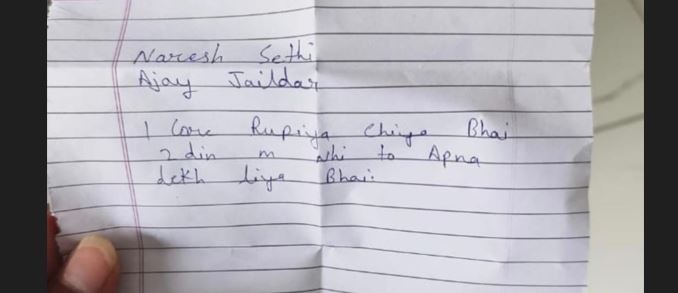 Naresh Sethi
Ajay Jaildar
1 Core Rupiya Chiya Bhai
2 din m nhi to Apna
dekh liya Bhai.